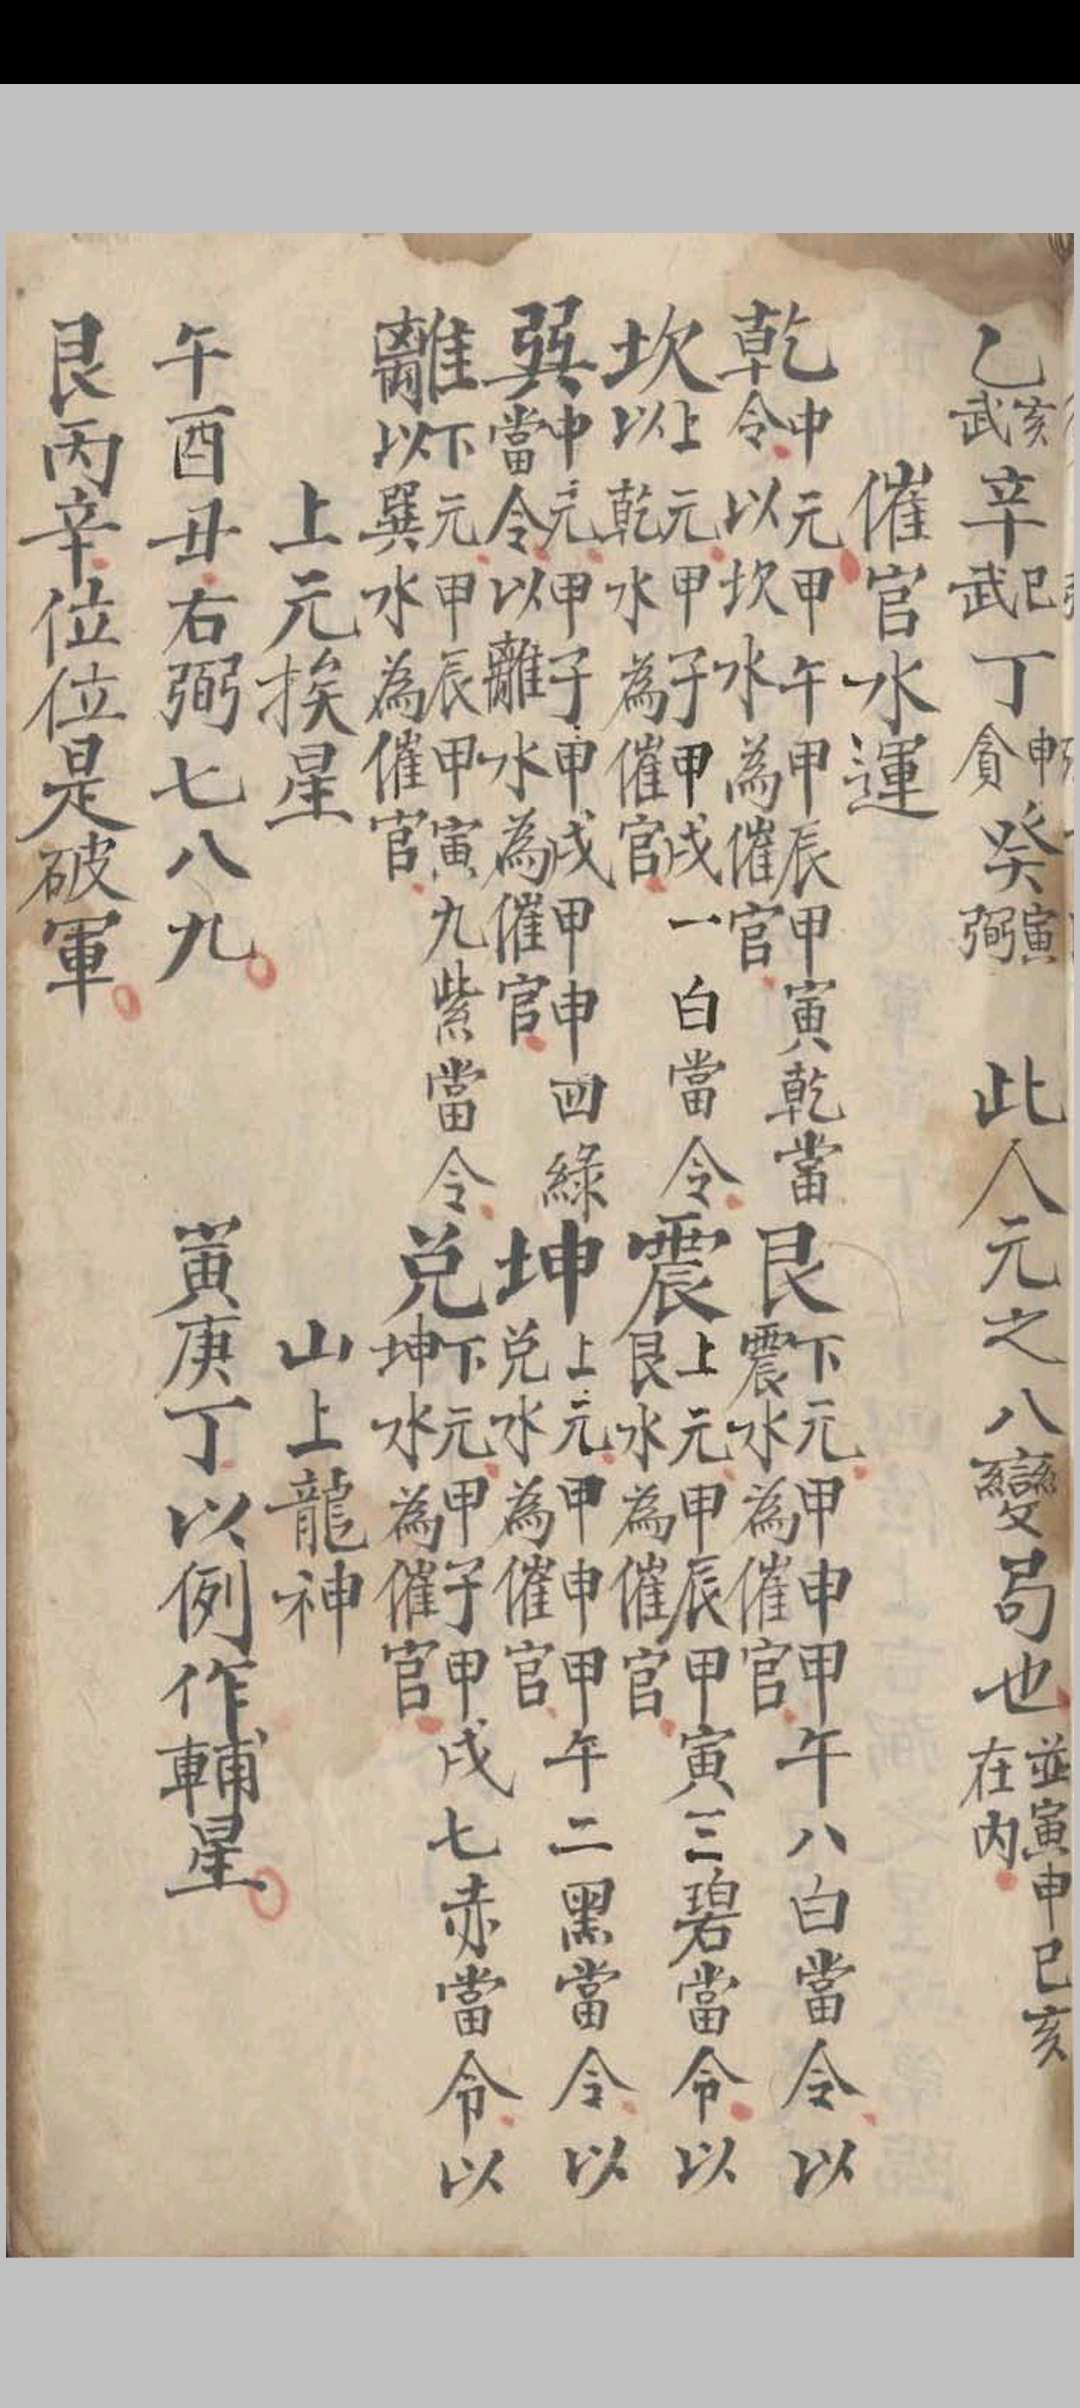 乙亥武辛巳武丁申貪癸寅弼 此人元之八變局也並寅申巳亥在内
催官水運
乾中元甲午甲辰甲寅乾當令以坎水為催官 艮下元甲申甲午八白當令以震水為催官
坎上元甲子甲戌一白當令以乾水為催官 震上元甲辰甲寅三碧當令以艮水為催官
巽中元甲子甲戌甲申四綠當令以離水為催官 坤上元甲申甲午二黑當令以兑水為催官
離下元甲辰甲寅九紫當令以巽水為催官 兑下元甲子甲戌七赤當令以坤水為催官
上元挨星 山上龍神
午酉丑右弼七八九 寅庚丁以例作輔星
艮丙辛位位是破軍